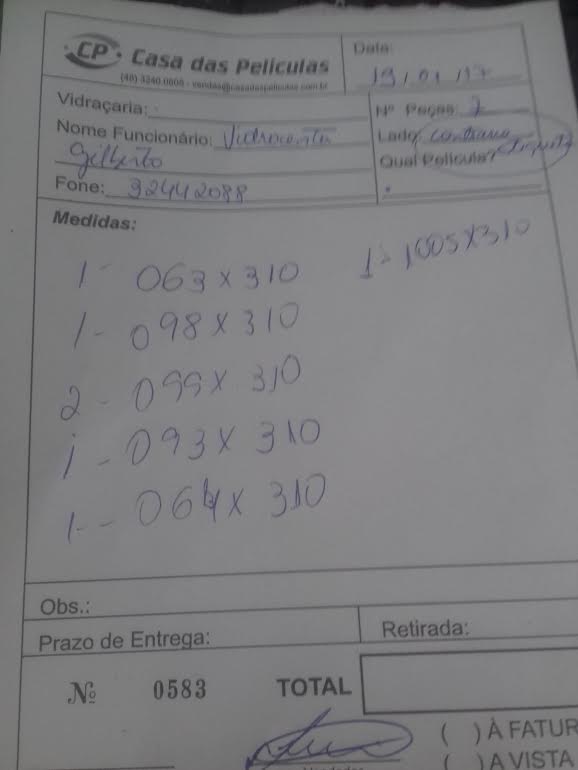 CP Casa das Películas
(48) 3240.0606 - vendas@casadaspeliculas.com.br
Data:
19/01/17
Vidraçaria:
Nº Peças: 7
Nome Funcionário: Vidrocenter
Lado: contrario
Gilberto
Qual Película?
Fone: 32442088
Medidas:
1 - 063 x 310
1 - 1005 x 310
1 - 098 x 310
2 - 099 x 310
1 - 093 x 310
1 - 064 x 310
Obs.:
Prazo de Entrega:
Retirada:
Nº 0583 TOTAL
( ) À FATUR
( ) A VISTA